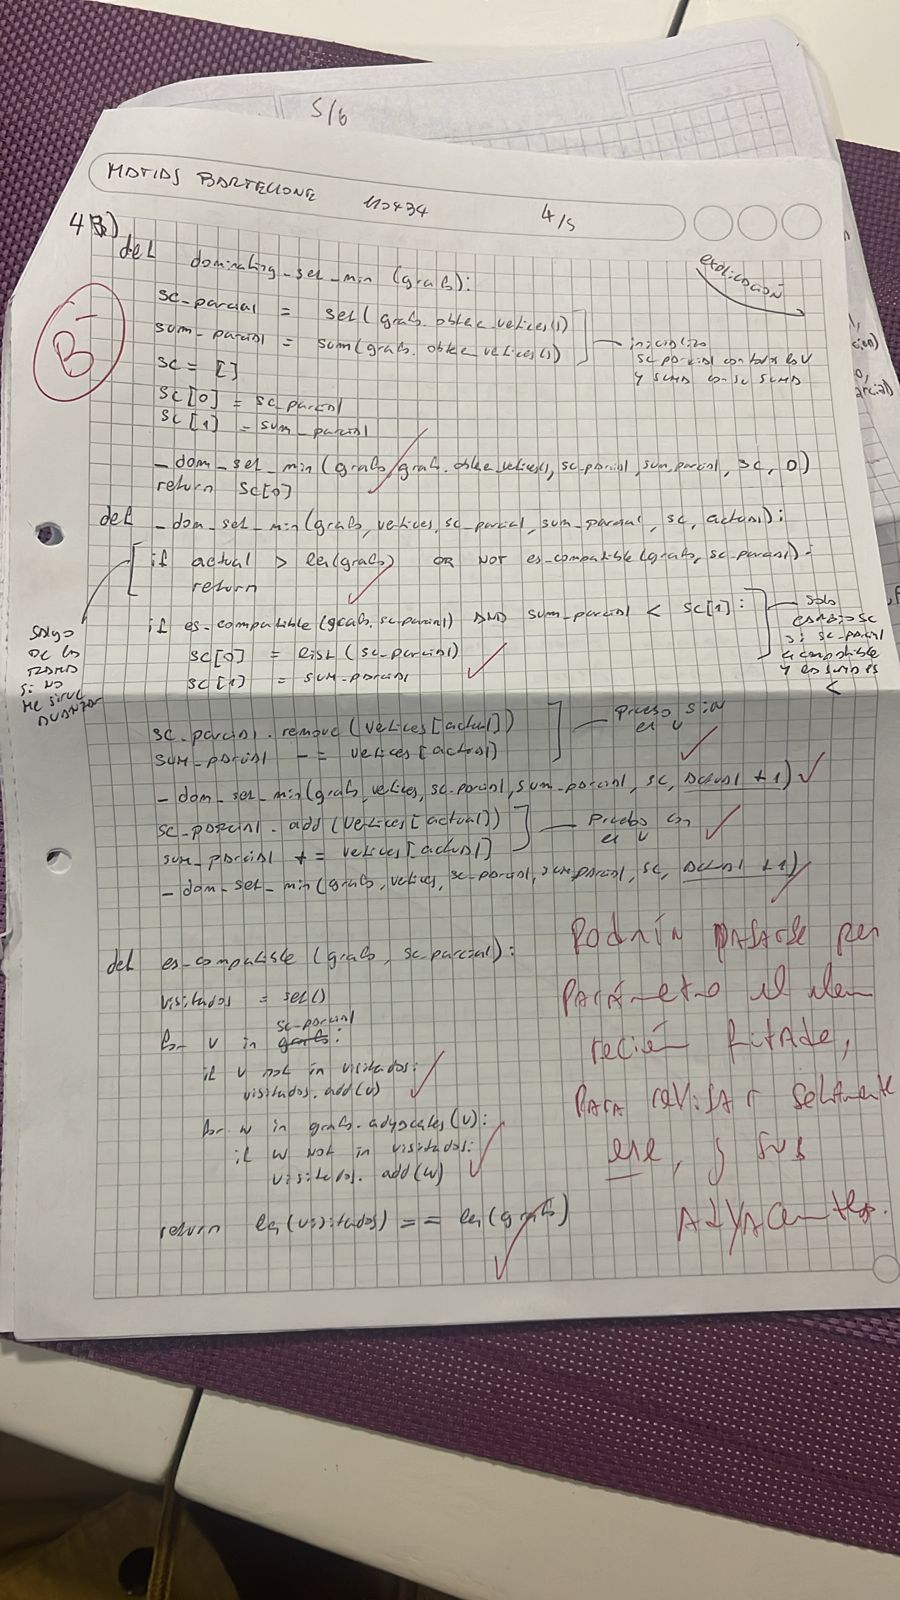 S/6
MATIAS BARTELLONE 110434 4/5
4B)
def dominating_set_min (grafo):
explicación
sc_parcial = set(grafo.obtener_vertices())
sum_parcial = sum(grafo.obtener_vertices())
inicializo
sc parcial con todos los V
y suma con su suma
B-
sc = []
sc[0] = sc_parcial
sc[1] = sum_parcial
_dom_set_min(grafo, grafo.obtener_vertices(), sc_parcial, sum_parcial, sc, 0)
return sc[0]
def _dom_set_min(grafo, vertices, sc_parcial, sum_parcial, sc, actual):
if actual > len(grafo) OR NOT es_compatible(grafo, sc_parcial):
return
salgo
de la
rama
si no
me sirve
avanzar
if es_compatible(grafo, sc_parcial) AND sum_parcial < sc[1]:
sc[0] = list(sc_parcial)
sc[1] = sum_parcial
solo
cambio sc
si sc_parcial
es compatible
y su suma es
<
sc_parcial.remove(vertices[actual])
sum_parcial -= vertices[actual]
pruebo sin
el v
_dom_set_min(grafo, vertices, sc_parcial, sum_parcial, sc, actual + 1)
sc_parcial.add(vertices[actual])
sum_parcial += vertices[actual]
pruebo con
el v
_dom_set_min(grafo, vertices, sc_parcial, sum_parcial, sc, actual + 1)
def es_compatible (grafo, sc_parcial):
visitados = set()
for v in sc_parcial:
if v not in visitados:
visitados.add(v)
for w in grafo.adyacentes(v):
if w not in visitados:
visitados.add(w)
return len(visitados) == len(grafo)
Podrían pasarse por
parámetro el elem
recién quitado,
para revisar solamente
ese, y sus
adyacentes.